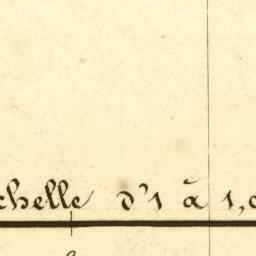 chelle d'1 à 1,0